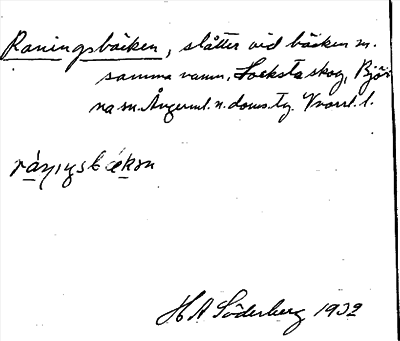 Raningsbäcken, slåtter vid bäcken m.
samma namn, Locksta skog, Björ-
na sn. Ångerml. n. doms. tg. Vnorrl. l.
råŋıŋsbækən
H A Söderberg 1932